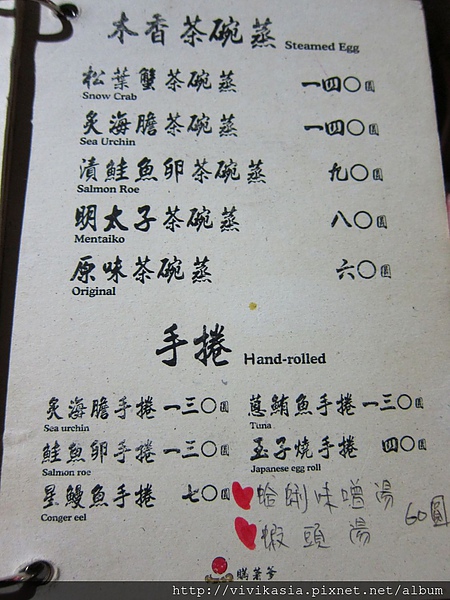 木香茶碗蒸 Steamed Egg
松葉蟹茶碗蒸 一四〇圓
Snow Crab
炙海膽茶碗蒸 一四〇圓
Sea Urchin
漬鮭魚卵茶碗蒸 九〇圓
Salmon Roe
明太子茶碗蒸 八〇圓
Mentaiko
原味茶碗蒸 六〇圓
Original
手捲 Hand-rolled
炙海膽手捲 一三〇圓 蔥鮪魚手捲 一三〇圓
Sea urchin Tuna
鮭魚卵手捲 一三〇圓 玉子燒手捲 四〇圓
Salmon roe Japanese egg roll
星鰻魚手捲 七〇圓
Conger eel
蛤蜊味噌湯
蝦頭湯 60圓
http://vivikasia.pixnet.net/album